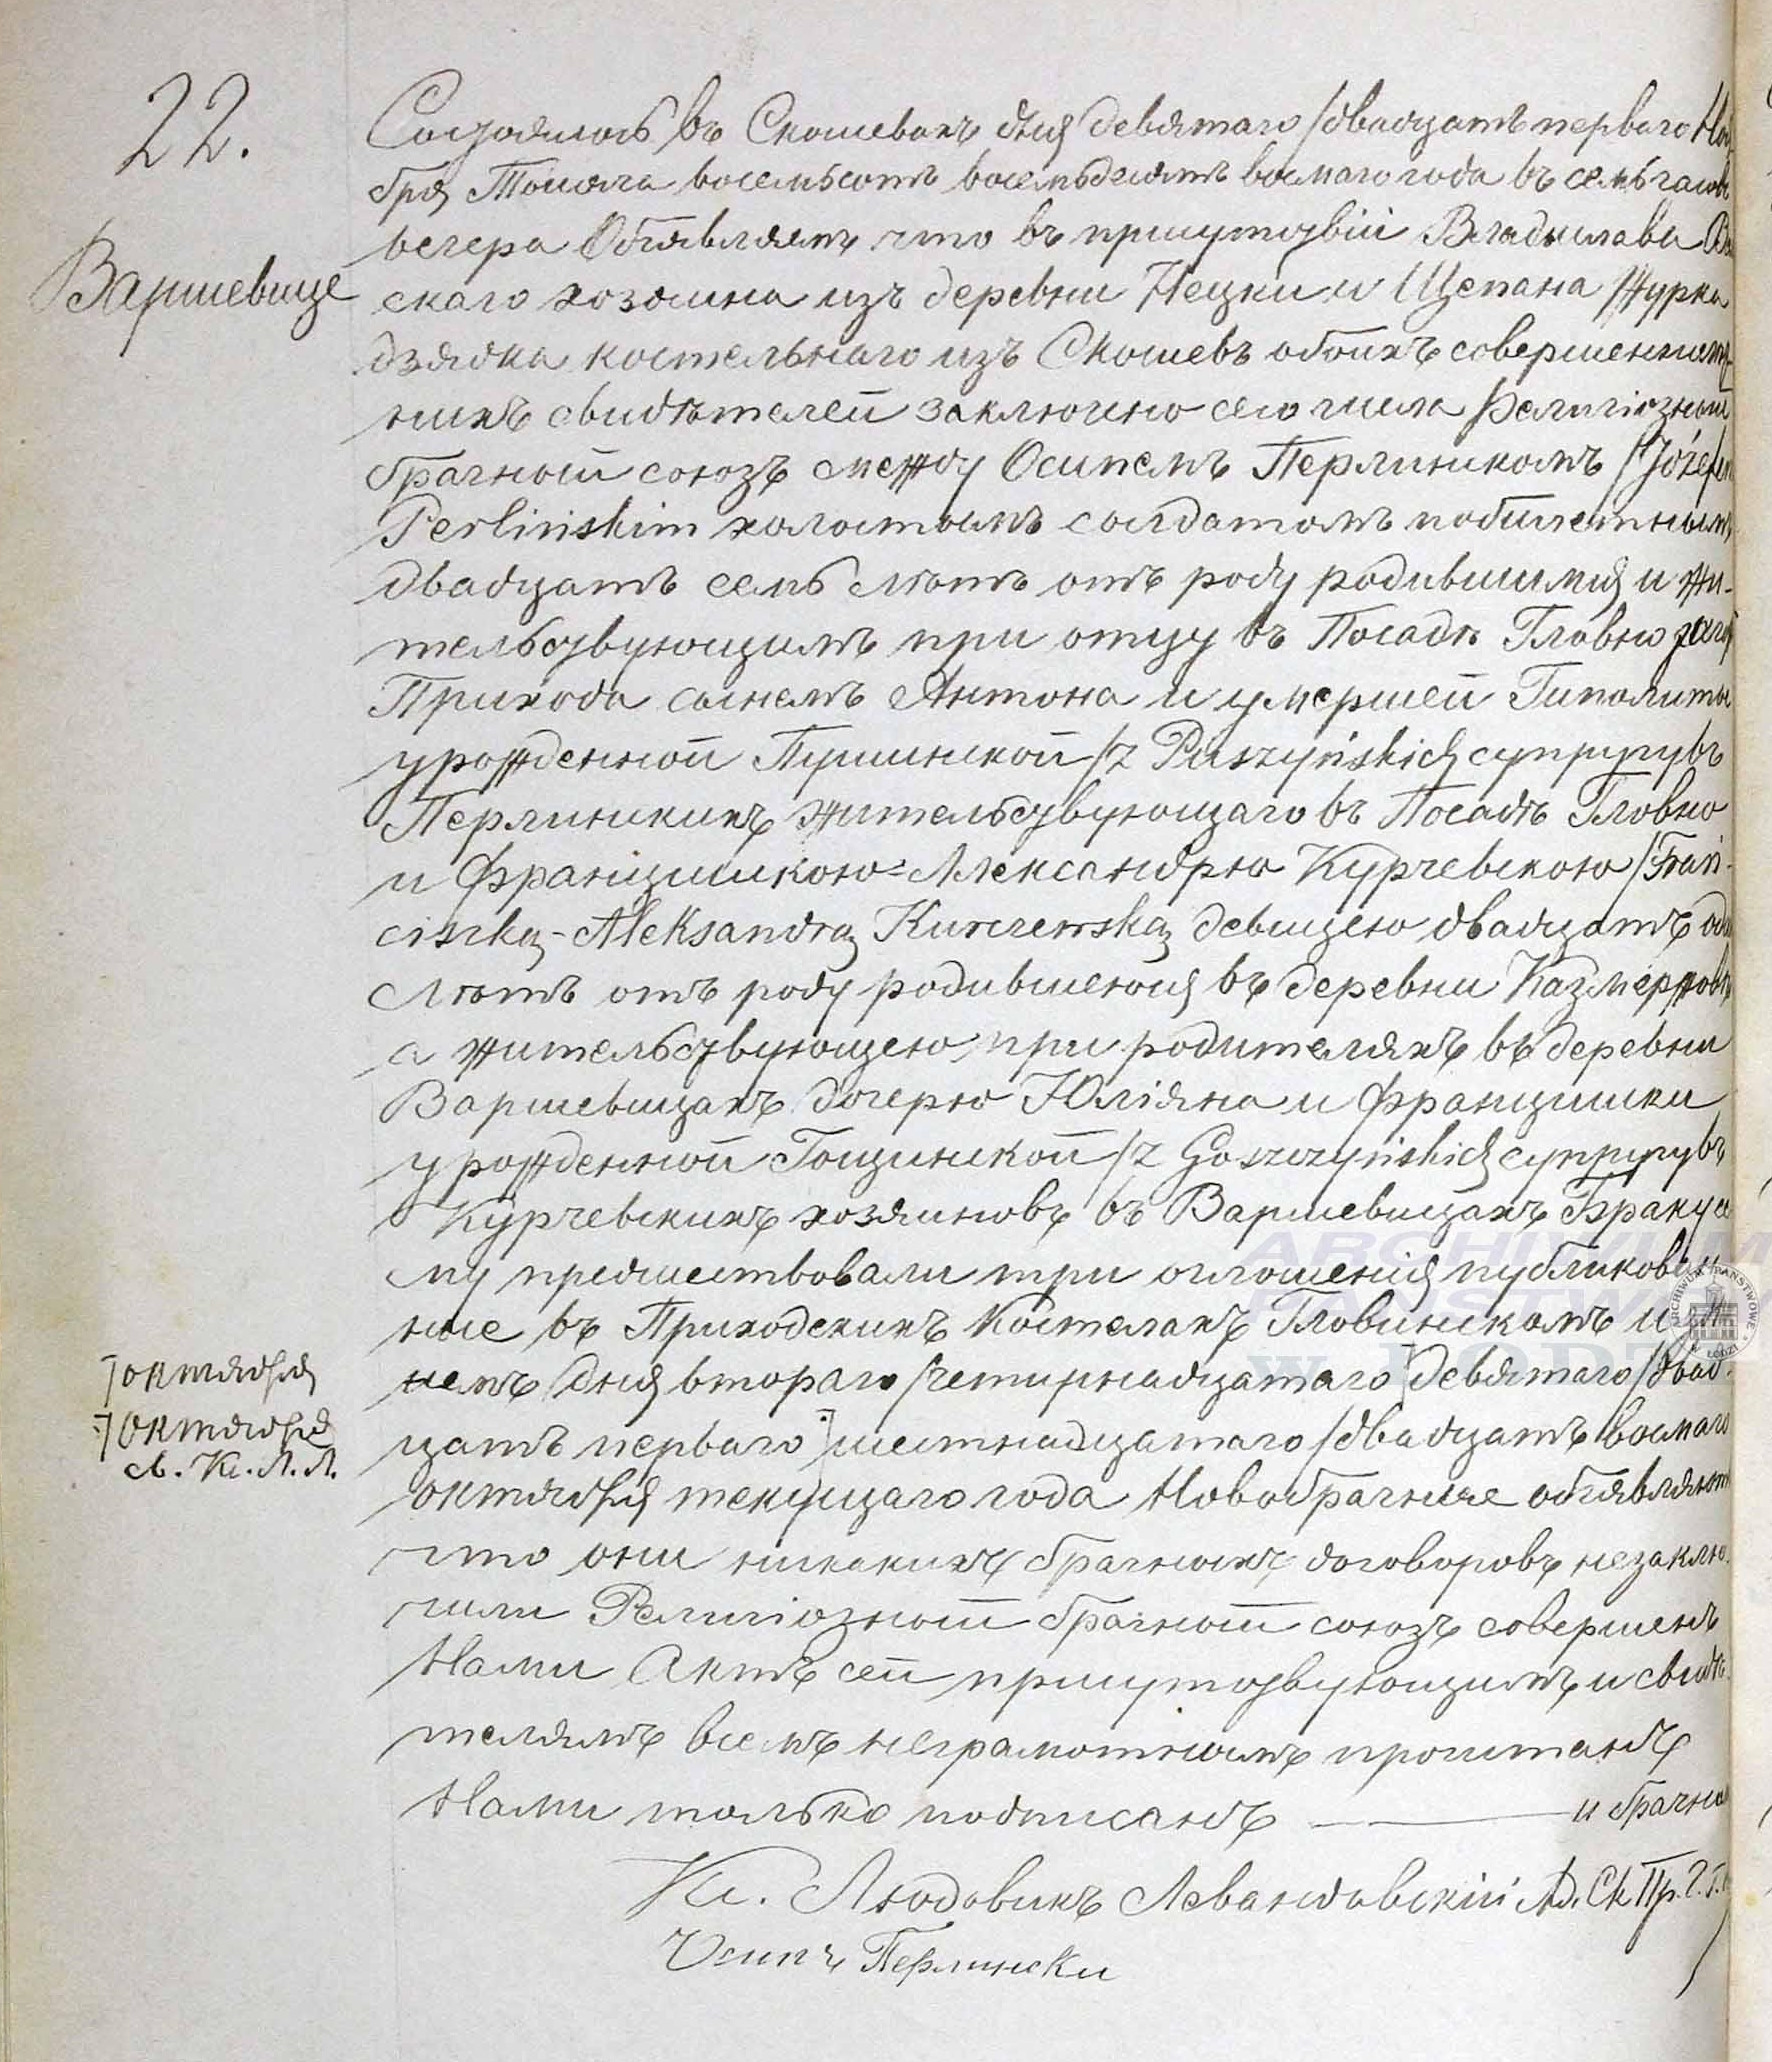 22.
Варшевице
Состоялось въ Скошевахъ дня девятаго /двадцать перваго Ноя
бря Тысяча восемьсотъ восемьдесятъ восмаго года въ семь часовъ
вечера Объявляемъ что въ присутствіи Владыслава
скаго хозяина изъ деревни Нецки и Щепана Журка
дзядка костельнаго изъ Скошевъ обоихъ совершеннолѣт-
нихъ свидѣтелей заключено сего числа Религіозный
брачный союзъ между Осипемъ Перлинскомъ /Józefem
Perlińskim холостымъ солдатомъ побилетнымъ
двадцать семь лѣтъ отъ роду родившимся и жи-
тельствующимъ при отцу въ Посадѣ Гловно
Прихода сынемъ Антона и умершей Гиполиты
урожденной Пушинской /z Puszyńskich супруговъ
Перлинскихъ жительствующаго въ Посадѣ Гловно
и Францишкою-Александрю Курчевскою /Fran-
ciszką-Aleksandrą Kurczewską девицею двадцать одн
лѣтъ отъ роду родившеюся въ деревни Казмержовѣ
а жительствующею при родителяхъ въ деревни
Варшевицахъ дочерю Юліяна и Францишки
урожденной Гощинской /z Goszczyńskich супруговъ
Курчевскихъ хозяиновъ въ Варшевицахъ Браку се
му предшествовали три оглошенія публикован
ные въ Приходскихъ Костелахъ Гловинскомъ и
немъ дня втораго /четырнадцатаго девятаго /двад-
цать перваго шестнадцатаго /двадцать восмаго
октября текущаго года Новобрачные объявляютъ
что они никакихъ брачныхъ договоровъ незаклю-
чили Религіозный брачный союзъ совершенъ
Нами Актъ сей присутствующимъ и свидѣ-
телямъ всемъ неграмотнымъ прочитанъ
Нами только подписанъ и брачным
Кс. Людовикъ Левандовскій Ад. Ск Пр.
Осипъ Перлински
октября
Октября
Л. Кс. Л. Л.
ARCHIWUM
PAŃSTWOWE
W ŁODZI
ARCHIWUM PAŃSTWOWE W ŁODZI